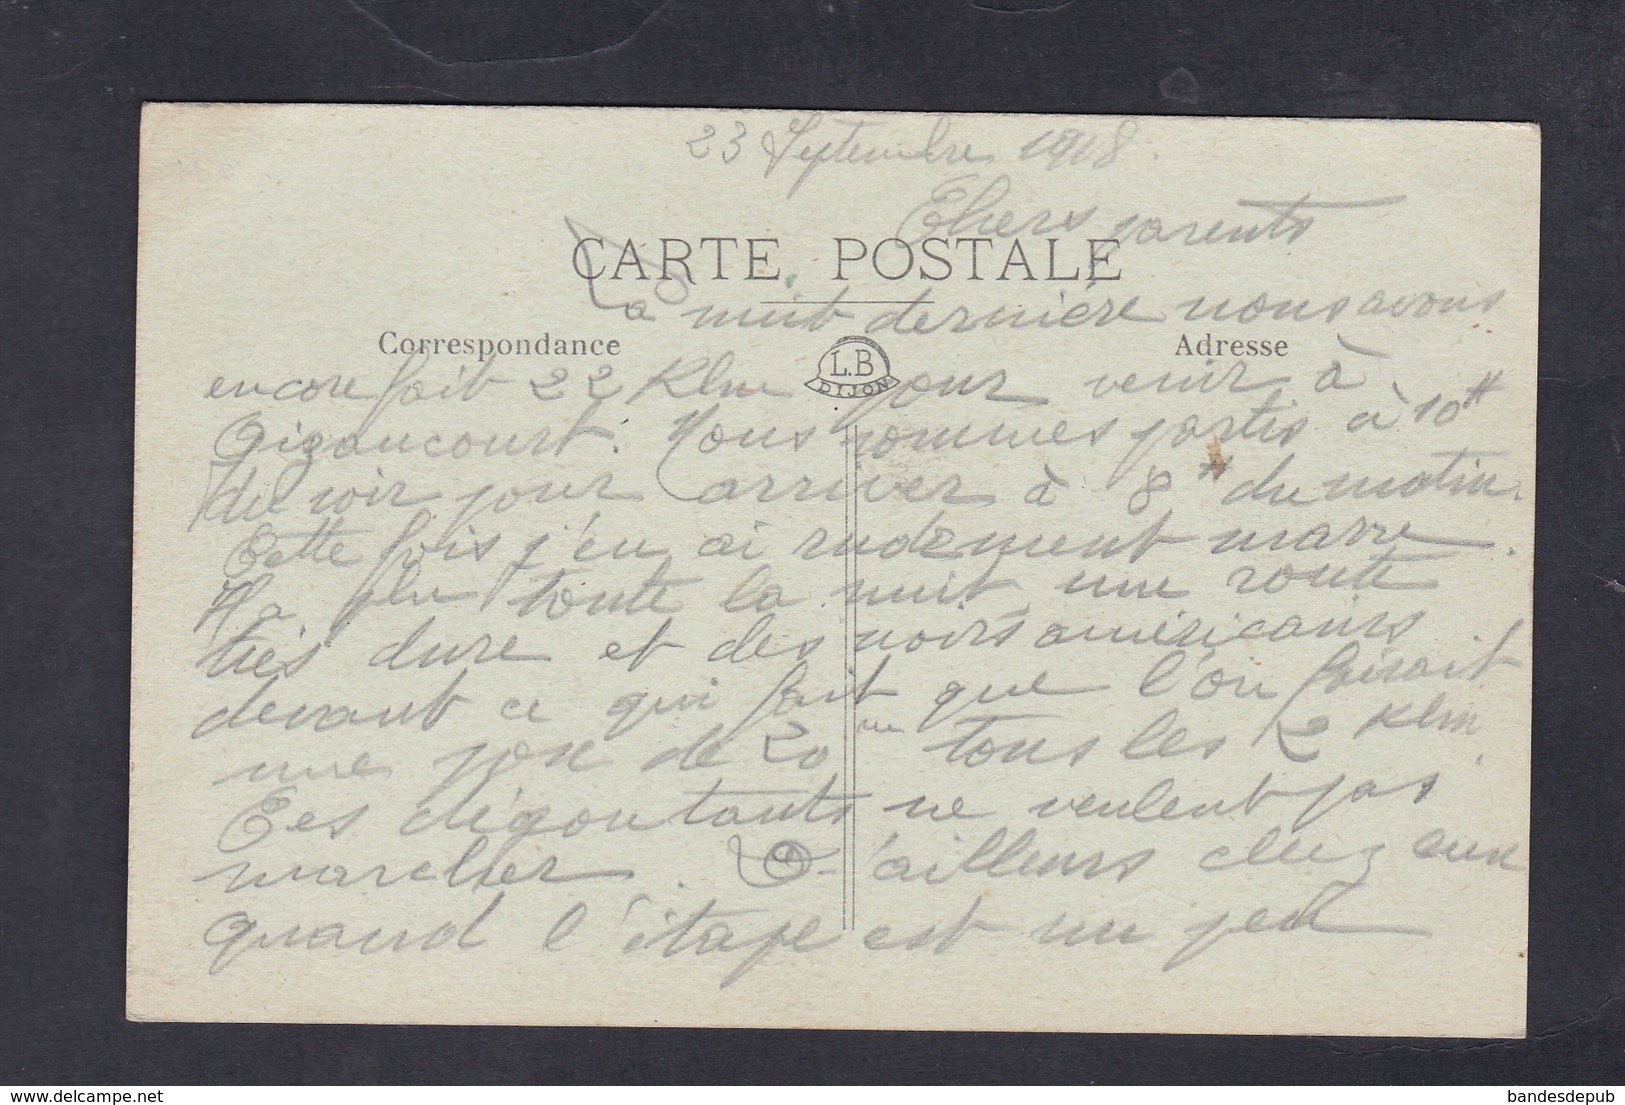 23 Septembre 1918.
Chers parents
CARTE POSTALE
La nuit dernière nous avons
Correspondance
L.B
DIJON
Adresse
encore fait 22 Klm pour venir à
Gizaucourt. Nous sommes partis à 10H
du soir pour arriver à 8H du matin.
Cette fois j'en ai rudement marre.
Il a plu toute la nuit, une route
très dure et des noirs américains
devant ce qui fait que l'on faisait
une pose de 20 mn tous les 2 Klm.
Ces dégoutants ne veulent pas
marcher. D'ailleurs chez eux
quand l'étape est un peu
delcampe.net
bandesdepub